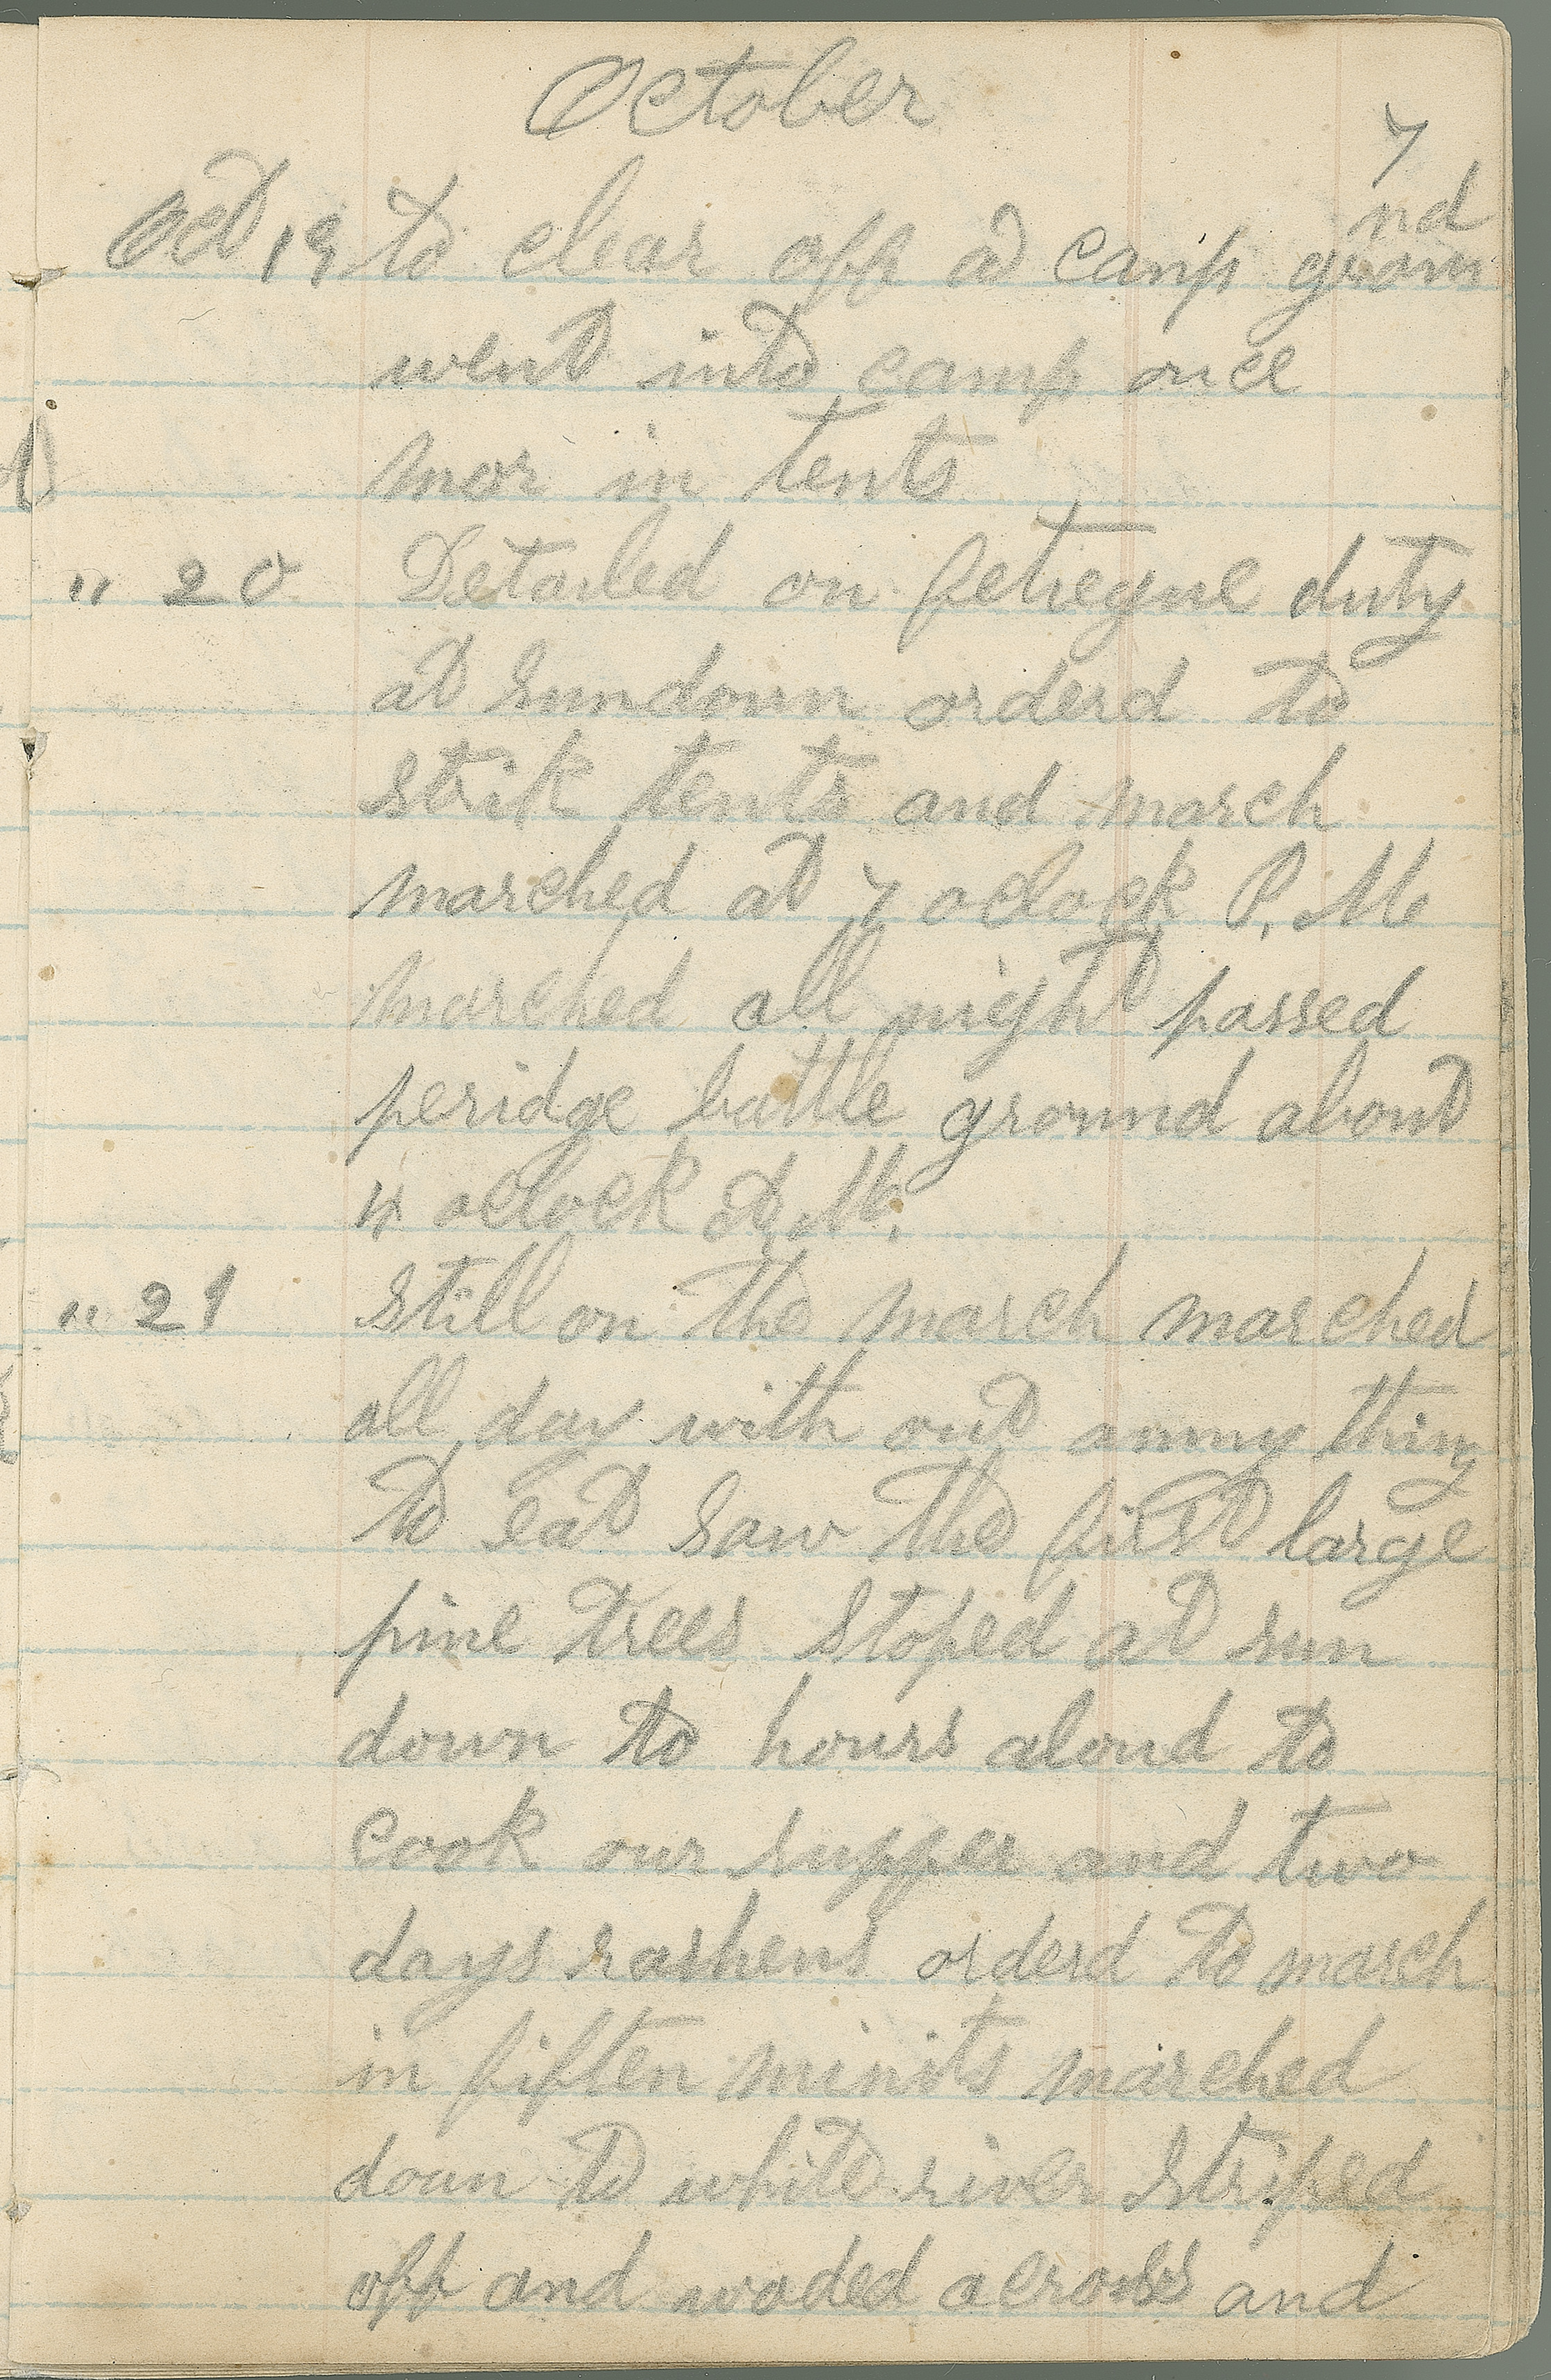 October
7
Oct 19 to clear off a camp ground
went into camp once
mor in tents
" 20 Detailed on fetiegue duty
at sundown orderd to
strik tents and march
marched at 7 oclock P. M
marched all night passed
peridge battle ground about
4 oclock A, M,
" 21 still on the march marched
all day with out anny thing
to eat saw the first large
pine trees stoped at sun
down to hours aloud to
cook our supper and two
days rashens orderd to march
in fiften minits marched
doun to white river striped
off and waded across and